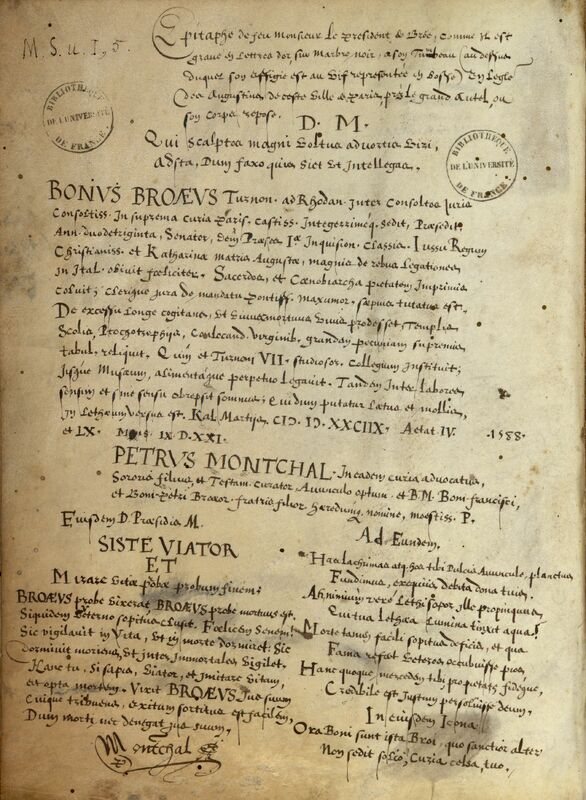 M. S. u. I, 5.
Epitaphe de feu Monsieur le president de Brée, comme il est
gravé en Lettres d'or, sur Marbre noir, a son Tumbeau (au dessus
duquel son effigie est au vif representée en bosse) En l'Egle
des Augustins de ceste Ville de Paris, prez le grand Autel, ou
son Corps repose.
BIBLIOTHEQUE DE L'UNIVERSITÉ DE FRANCE.
BIBLIOTHEQUE DE L'UNIVERSITÉ DE FRANCE.
D. M.
Qui Scalptos magni Voltus advortis Viri,
Adsta, Dum faxo quis siet Et Intellegas.
BONVS BROÆVS Turnon. ad Rhodan. Inter Consoltos Iuris
Consoltiss. In suprema Curia Paris. Castiss. Integerriméq. sedit, Præsedit
Ann. duodetriginta, Senator, dein Præses Iæ Inquision. Classis. Iussu Regum
Christianiss. et Katharinæ matris Augustæ, magnis de rebus Legationes
in Ital. obivit foeliciter. Sacerdos, et Coenobiarcha pietatem Imprimis
coluit; Clerique jura de mandatu Pontiff. maxumor. sæpius tutatus est.
De excessu Longe cogitans, et Vivus mortuus Vivis prodesset Templis
Scolis, Ptochotrophijs, Conlocand. virginib. grandem pecuniam supremis
tabul. reliquit. Quin et Turnon VII. studiosor. Collegium Instituit;
Iisque Musæum, alimentaque perpetuo Legavit. Tandem Inter Labores
sensim et sine sensu obrepsit somnus; qui dum putatur Lætus et mollis,
in Lethæum versus est. Kal Martijs, CIƆ. IƆ. XXCIIX. Aetat. IV.
et LX. Mens. IX D. XXI. 1588.
PETRVS MONTCHAL. In eadem curia advocatus,
Sororis filius, et Testam. curator Avunculo optum. et B. M. Boni francisci,
et Boni-Petri Broæor. fratris filior. Hæredum, nomine, moestiss. P.
Eiusdem D. Præsidis M.
SISTE VIATOR
ET
Mirare vitæ probæ probum finem:
BROÆVS probe vixerat, BROÆVS probe mortuus est.
Siquidem Æterno sopitus Cubat. Foelicem Senem!
Sic vigilavit in Vita, Et in morte dormiret. Sic
dormivit moriens, Et inter Immortales Vigilet.
Hanc tu, Si sapis, Viator, et imitare Vitam,
et opta mortem. Vixit BROÆVS Ius suum
Cuique tribuens, exitum sortitus est facilem,
Dum morti nec denegat ius suum,
Montchal
Ad Eundem.
Has lachrimas atq. hos tibi Dulcis Avuncule, planctus
Fundimus, exequijs debita dona tuis.
Ah nimium verò Lethi sopor ille propinquus,
Qui tua Lethæa Lumina tinxit aqua!
Morte tamen facili sopitus deficis, et qua
Fama refert Veteres occubuisse pios,
Hanc quoque, mercedem tibi propietatis fidéque,
Credibile est Iustum persoluisse deum,
In eiusdem Icona
Ora Boni sunt ista Broi, quo sanctior alter
Non sedit solio, Curia celsa, tuo.